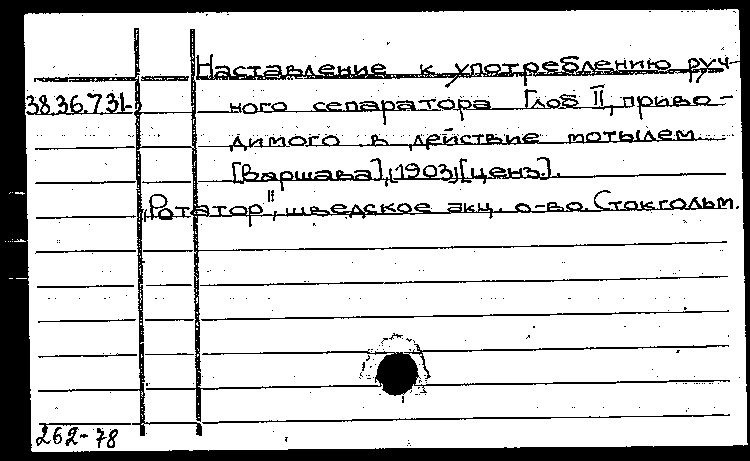 Наставление к употреблению руч-
38.36.731- ного сепаратора Глоб II, приво-
димого в действие мотылем.
[Варшава], (1903) [ценз.].
„Ротатор", шведское акц. о-во. Стокгольм.
262-78